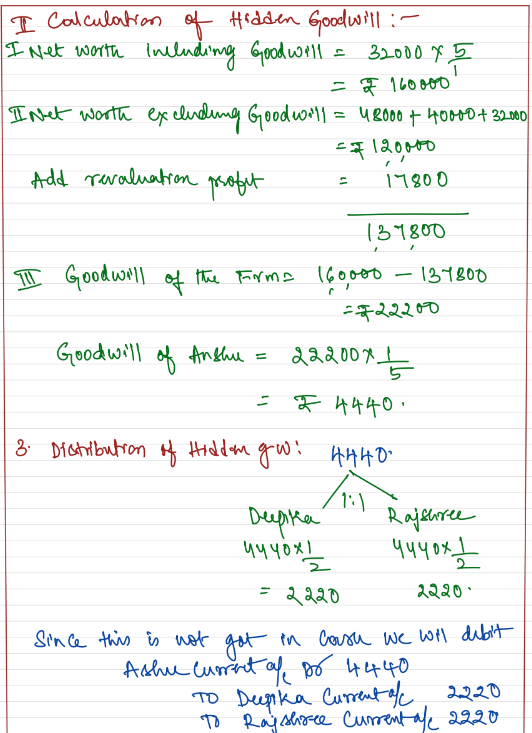 II Calculation of Hidden Goodwill :-
I Net worth including Goodwill = 32000 x 5/1
= ₹ 160000
II Net worth excluding Goodwill = 48000 + 40000 + 32000
= ₹ 120,000
Add revaluation profit = 17800
137800
III Goodwill of the Firm = 160,000 - 137800
= ₹ 22200
Goodwill of Anshu = 22200 x 1/5
= ₹ 4440.
3. Distribution of Hidden g.w: 4440.
1:1
Deepika Rajshree
4440x1/2 4440x1/2
= 2220 2220.
Since this is not got in cash we will debit
Ashu Current a/c Dr 4440
To Deepika Current a/c 2220
To Rajshree Current a/c 2220